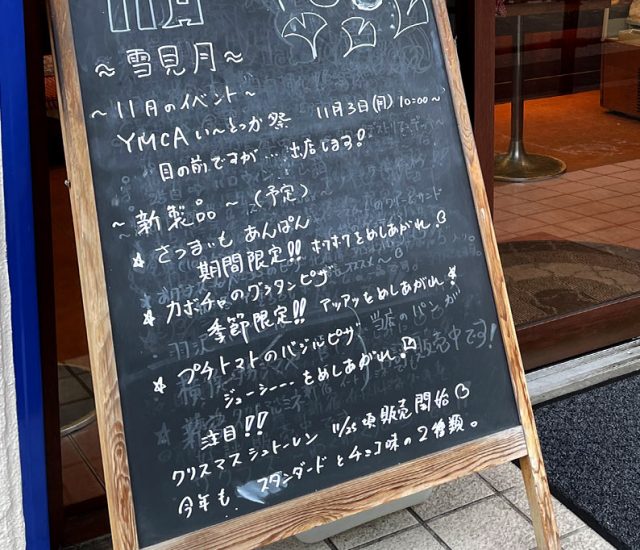 11月
~ 雪見月 ~
~ 11月のイベント ~
YMCA いーとっか祭 11月3日(月) 10:00~
目の前ですが… 出店します!
~ 新製品 ~ (予定)
☆ さつまいも あんぱん
期間限定!! ホクホクをめしあがれ!
☆ カボチャのグラタンピザ
季節限定!! アツアツをめしあがれ!
☆ プチトマトのバジルピザ
ジューシー… をめしあがれ!
注目!!
クリスマスシュトーレン 11/25頃販売開始
今年も、スタンダードとチョコ味の2種類。